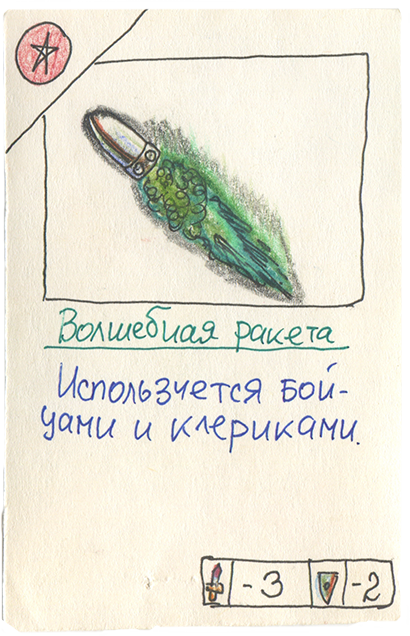 Волшебная ракета
Используется бой-
цами и клериками.
-3
-2